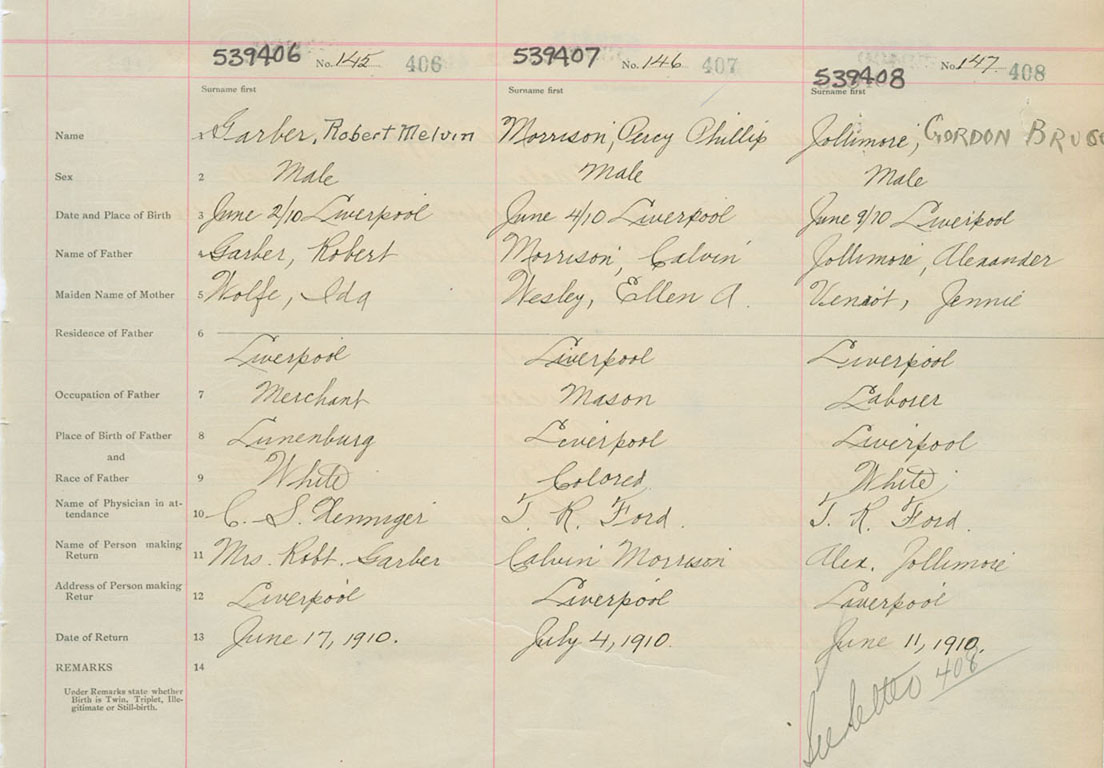 539406 No. 145 406 539407 No. 146 407 539408 No. 147 408
Surname first Surname first Surname first
Name 1 Garber, Robert Melvin Morrison, Percy Phillip Jollimore, GORDON
Sex 2 Male Male Male
Date and Place of Birth 3 June 2/10 Liverpool June 4/10 Liverpool June 9/10 Liverpool
Name of Father 4 Garber, Robert Morrison, Calvin Jollimore, Alexander
Maiden Name of Mother 5 Wolfe, Ida Wesley, Ellen A. Veniot, Jennie
Residence of Father 6
Liverpool Liverpool Liverpool
Occupation of Father 7 Merchant Mason Laborer
Place of Birth of Father 8 Lunenburg Liverpool Liverpool
and
Race of Father 9 White Colored White
Name of Physician in at-
tendance 10 C. S. Henniger T. R. Ford. T. R. Ford.
Name of Person making
Return 11 Mrs. Robt. Garber Calvin Morrison Alex. Jollimore
Address of Person making
Retur 12 Liverpool Liverpool Liverpool
Date of Return 13 June 17, 1910. July 4, 1910. June 11, 1910.
REMARKS 14
Under Remarks state whether
Birth is Twin, Triplet, Ille-
gitimate or Still-birth.
See letter 408